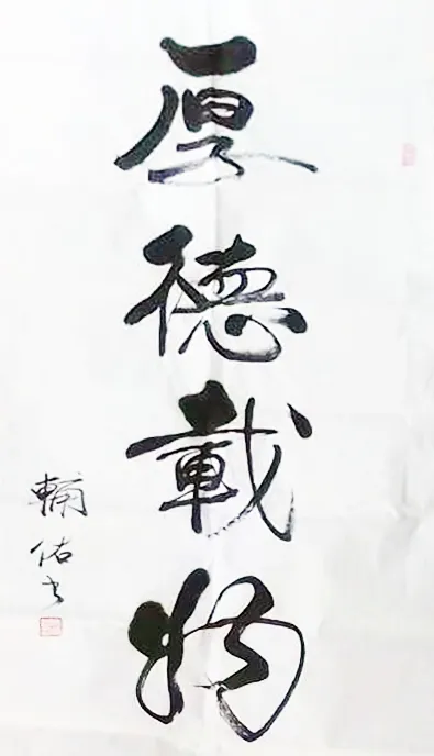 厚德載物
輔佑书